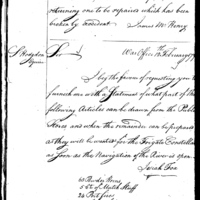 returning one to be repaired which has been
broken by accident James McHenry
S Hodgdon
Esquire
Sir War Office 7th February 97
I beg the favor of requesting you to
furnish me with a Statement of what part of the
following Articles can be drawn from the Public
Stores and when the remainder can be prepared
as they will be wanted for the Frigate Constellation
as soon as the Navigation of the River is open
Josiah Fox
5 Ct of Match Stuff